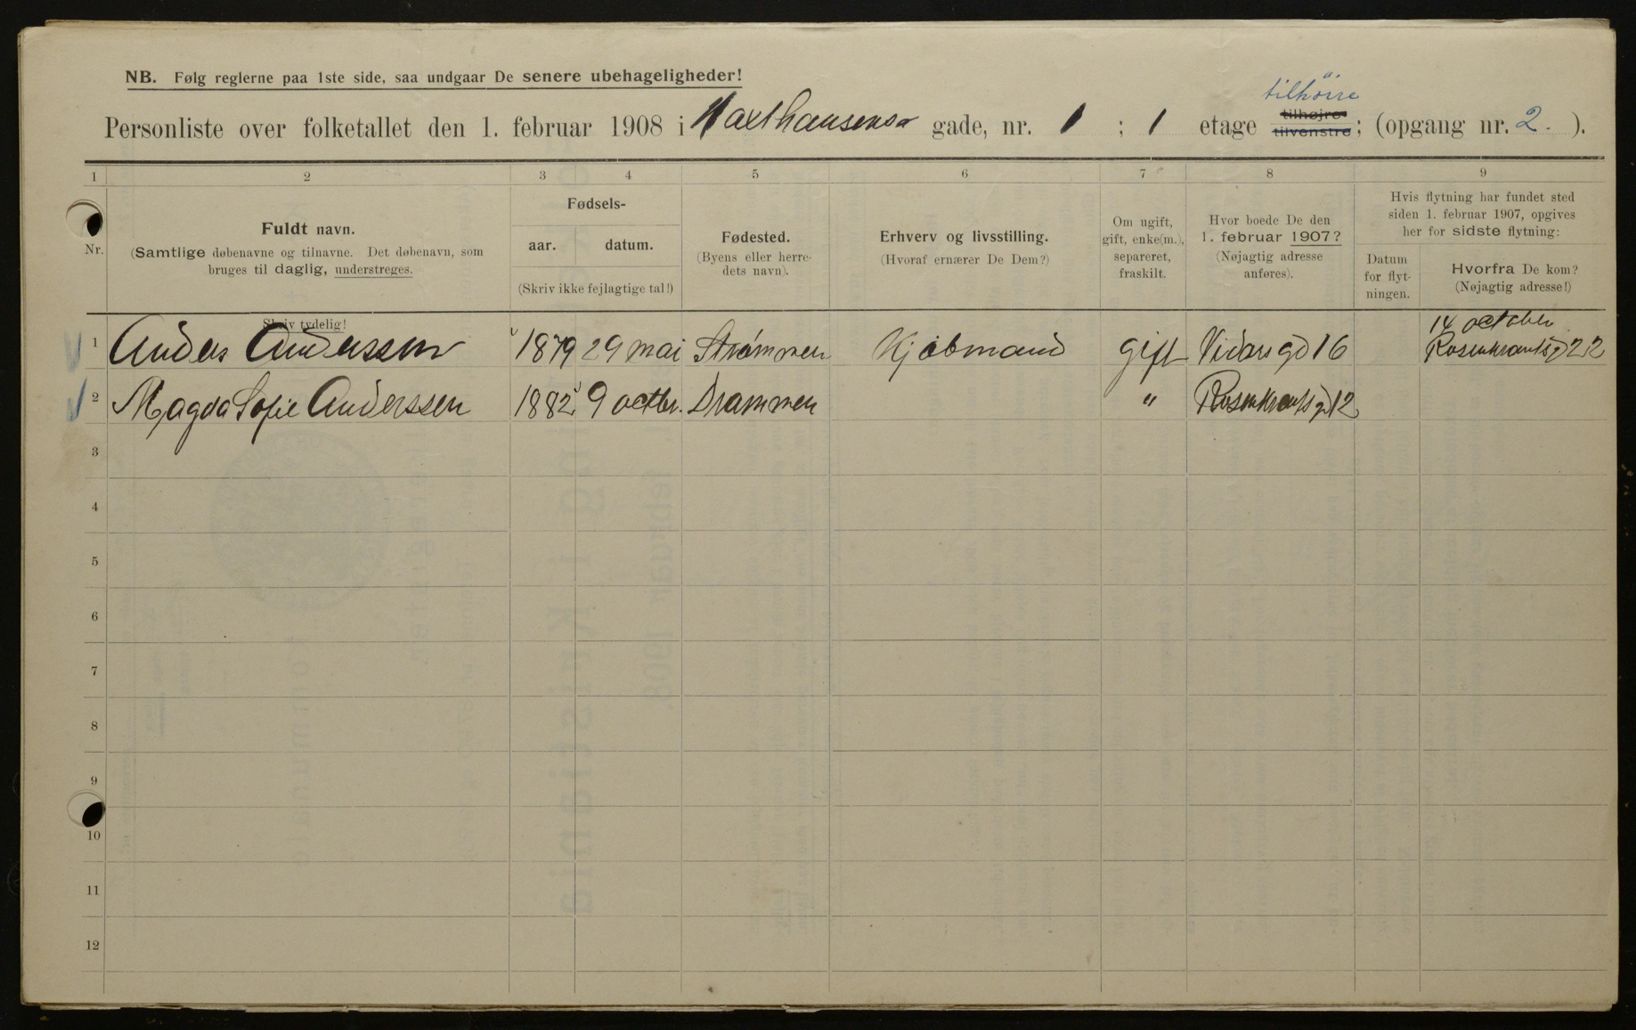 NB. Følg reglerne paa 1ste side, saa undgaar De senere ubehageligheder!
tilhöire
Personliste over folketallet den 1. februar 1908 i Haxthausensg gade, nr. 1 ; 1 etage tilhøjre tilvenstre; (opgang nr. 2. ).
1 2 3 4 5 6 7 8 9
Nr.
Fuldt navn.
(Samtlige døbenavne og tilnavne. Det døbenavn, som
bruges til daglig, understreges.
Skriv tydelig!
Fødsels-
aar. datum.
(Skriv ikke fejlagtige tal!)
Fødested.
(Byens eller herre-
dets navn).
Erhverv og livsstilling.
(Hvoraf ernærer De Dem?)
Om ugift,
gift, enke(m.),
separeret,
fraskilt.
Hvor boede De den
1. februar 1907?
(Nøjagtig adresse
anføres).
Hvis flytning har fundet sted
siden 1. februar 1907, opgives
her for sidste flytning:
Datum
for flyt-
ningen.
Hvorfra De kom?
(Nøjagtig adresse!)
14 october
1 Anders Anderssen 1879 29 mai Strømmen Kjøbmand gift Vidarsgd 16 Rosenkrantsgd 22
2 Magda Sofie Anderssen 1882 9 octbr. Drammen " Rosenkrantsgd 12
3
4
5
6
7
8
9
10
11
12